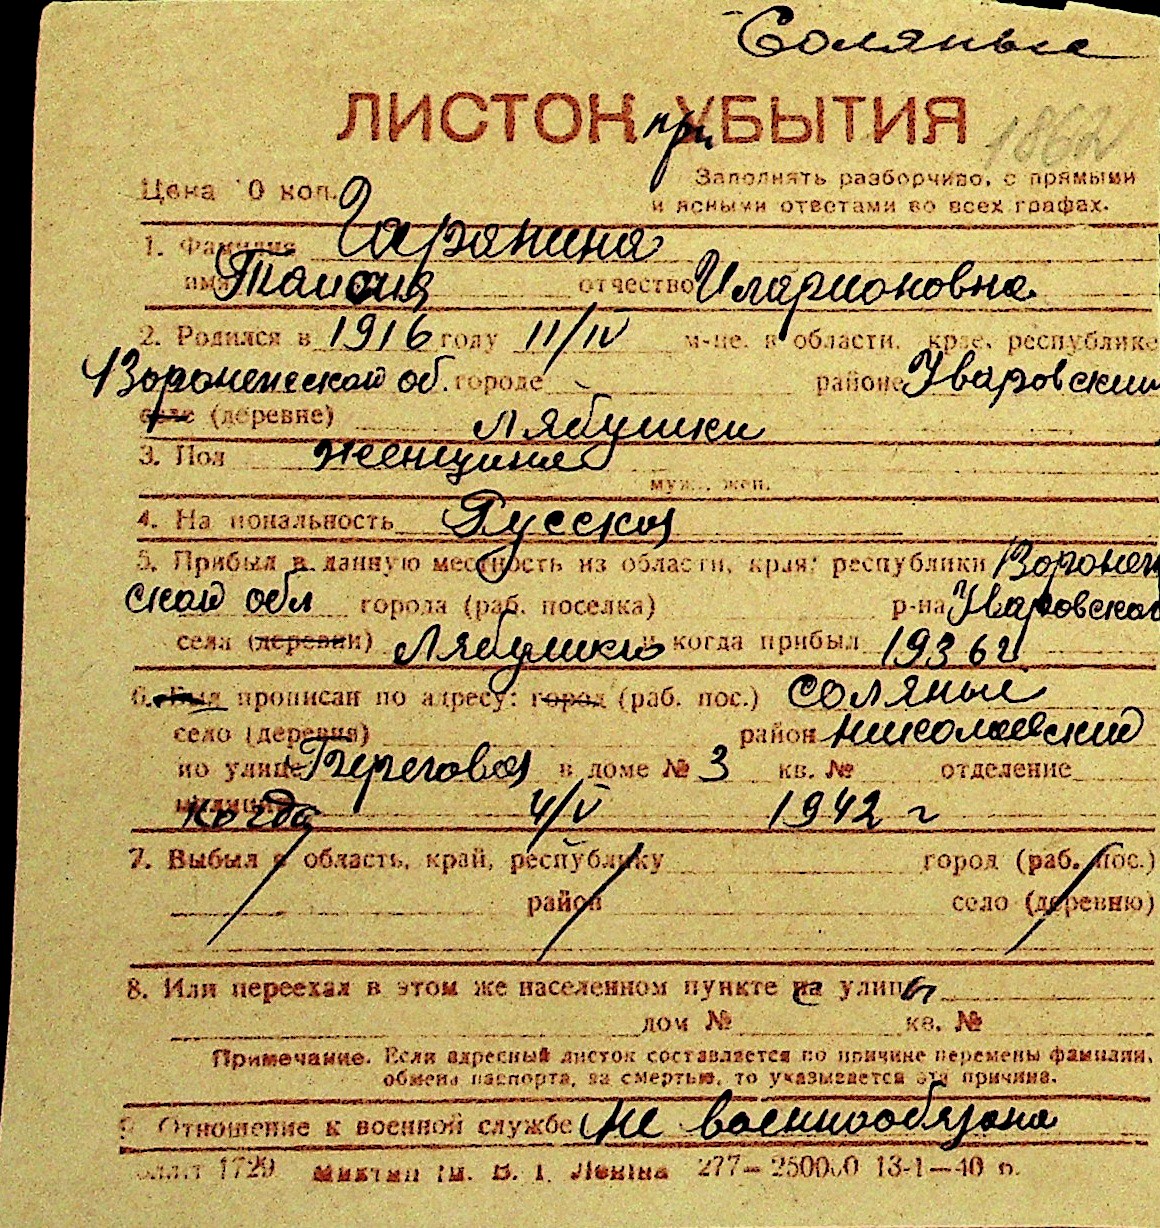 Соляные
ЛИСТОК при УБЫТИЯ
1862
Цена 10 коп. Заполнять разборчиво, с прямыми
и ясными ответами во всех графах.
1. Фамилия Гаранина
имя Таисия отчество Иларионовна
2. Родился в 1916 году 11/IV м-це. в области, крае, республике
Воронежской об. городе районе Уваровский
селе (деревне) Лябушки
3. Пол женщина
муж., жен.
4. Национальность Русская
5. Прибыл в данную местность из области, края, республики Воронеж
ской обл города (раб. поселка) р-на Уваровской
села (деревни) Лябушки и когда прибыл 1936 г
6. Был прописан по адресу: город (раб. пос.) Соляные
село (деревня) район николаевский
по улице Береговая в доме № 3 кв. № отделение
милиции когда 4/V 1942 г
7. Выбыл в область, край, республику город (раб. пос.)
район село (деревню)
8. Или переехал в этом же населенном пункте с улицы
дом № кв. №
Примечание. Если адресный листок составляется по причине перемены фамилии,
обмена паспорта, за смертью, то указывается эта причина.
9. Отношение к военной службе Не военнообязана
1729 им. В. И. Ленина 277—250000 13-1—40 г.